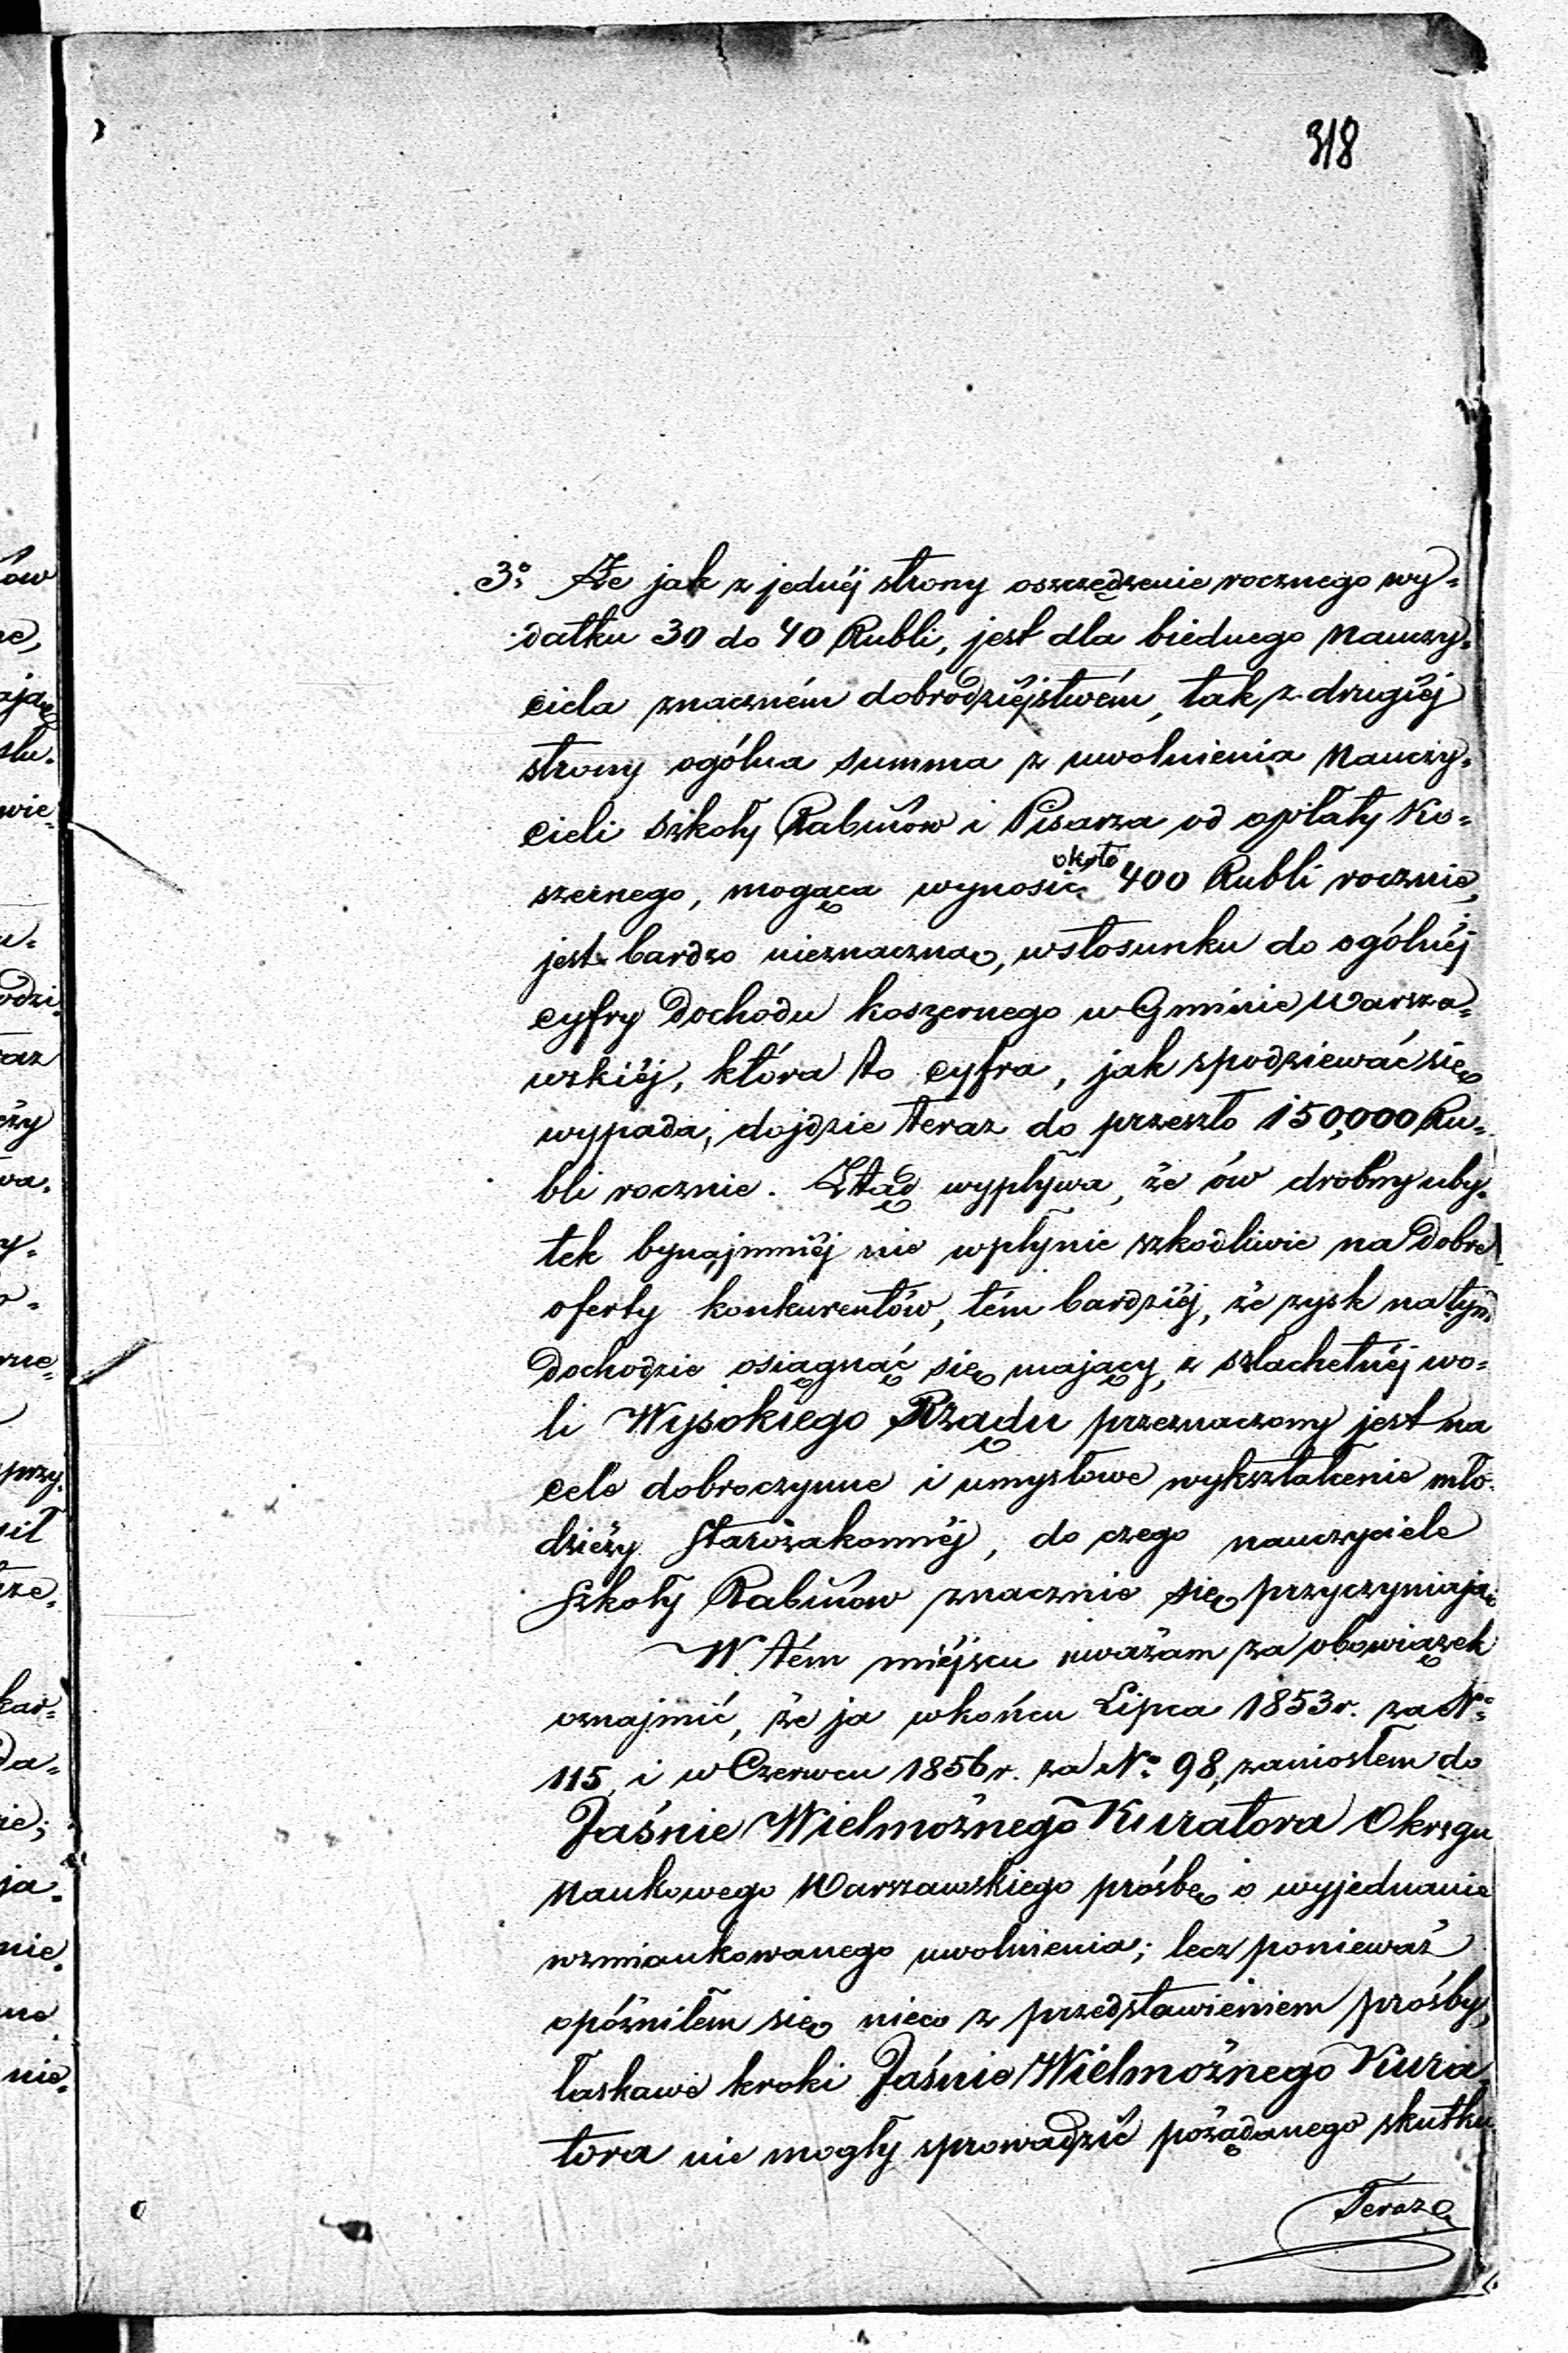 318
3o Że jak z jednéj strony oszczędzenie rocznego wy=
datku 30 do 40 Rubli, jest dla biednego Nauczy=
ciela znaczném dobrodziéjstwém, tak z drugiéj
strony ogólna summa z uwolnienia Nauczy=
cieli Szkoły Rabinów i Pisarza od opłaty Ko=
szernego, mogąca wynosić około 400 Rubli rocznie,
jest bardzo nieznaczną, w stosunku do ogólnéj
cyfry dochodu koszernego w Gminie Warsza=
wskiéj, która to cyfra, jak spodziewać się
wypada, dojdzie teraz do przeszło 150,000 Ru=
bli rocznie. Ztąd wypływa, że ów drobny uby=
tek bynajmniéj nie wpłynie szkodliwie na dobre
oferty konkurentów, tém bardziéj, że zysk na tym
dochodzie osiągnąć się mający, z szlachetnéj wo=
li Wysokiego Rządu przeznaczony jest na
cele dobroczynne i umysłowe wykształcenie mło=
dzieży Starozakonnéj, do czego nauczyciele
Szkoły Rabinów znacznie się przyczyniają.
W tém miéjscu uważam za obowiązek
oznajmić, że ja w końcu Lipca 1853 r. za No
115, i w Czerwcu 1856 r. za No 98, zaniosłem do
Jaśnie Wielmożnego Kuratora Okręgu
Naukowego Warszawskiego prośbę o wyjednanie
wzmiankowanego uwolnienia; lecz ponieważ
opóźniłem się nieco z przedstawieniem prośby,
łaskawe kroki Jaśnie Wielmożnego Kura=
tora nie mogły sprowadzić pożądanego skutku.
Teraz